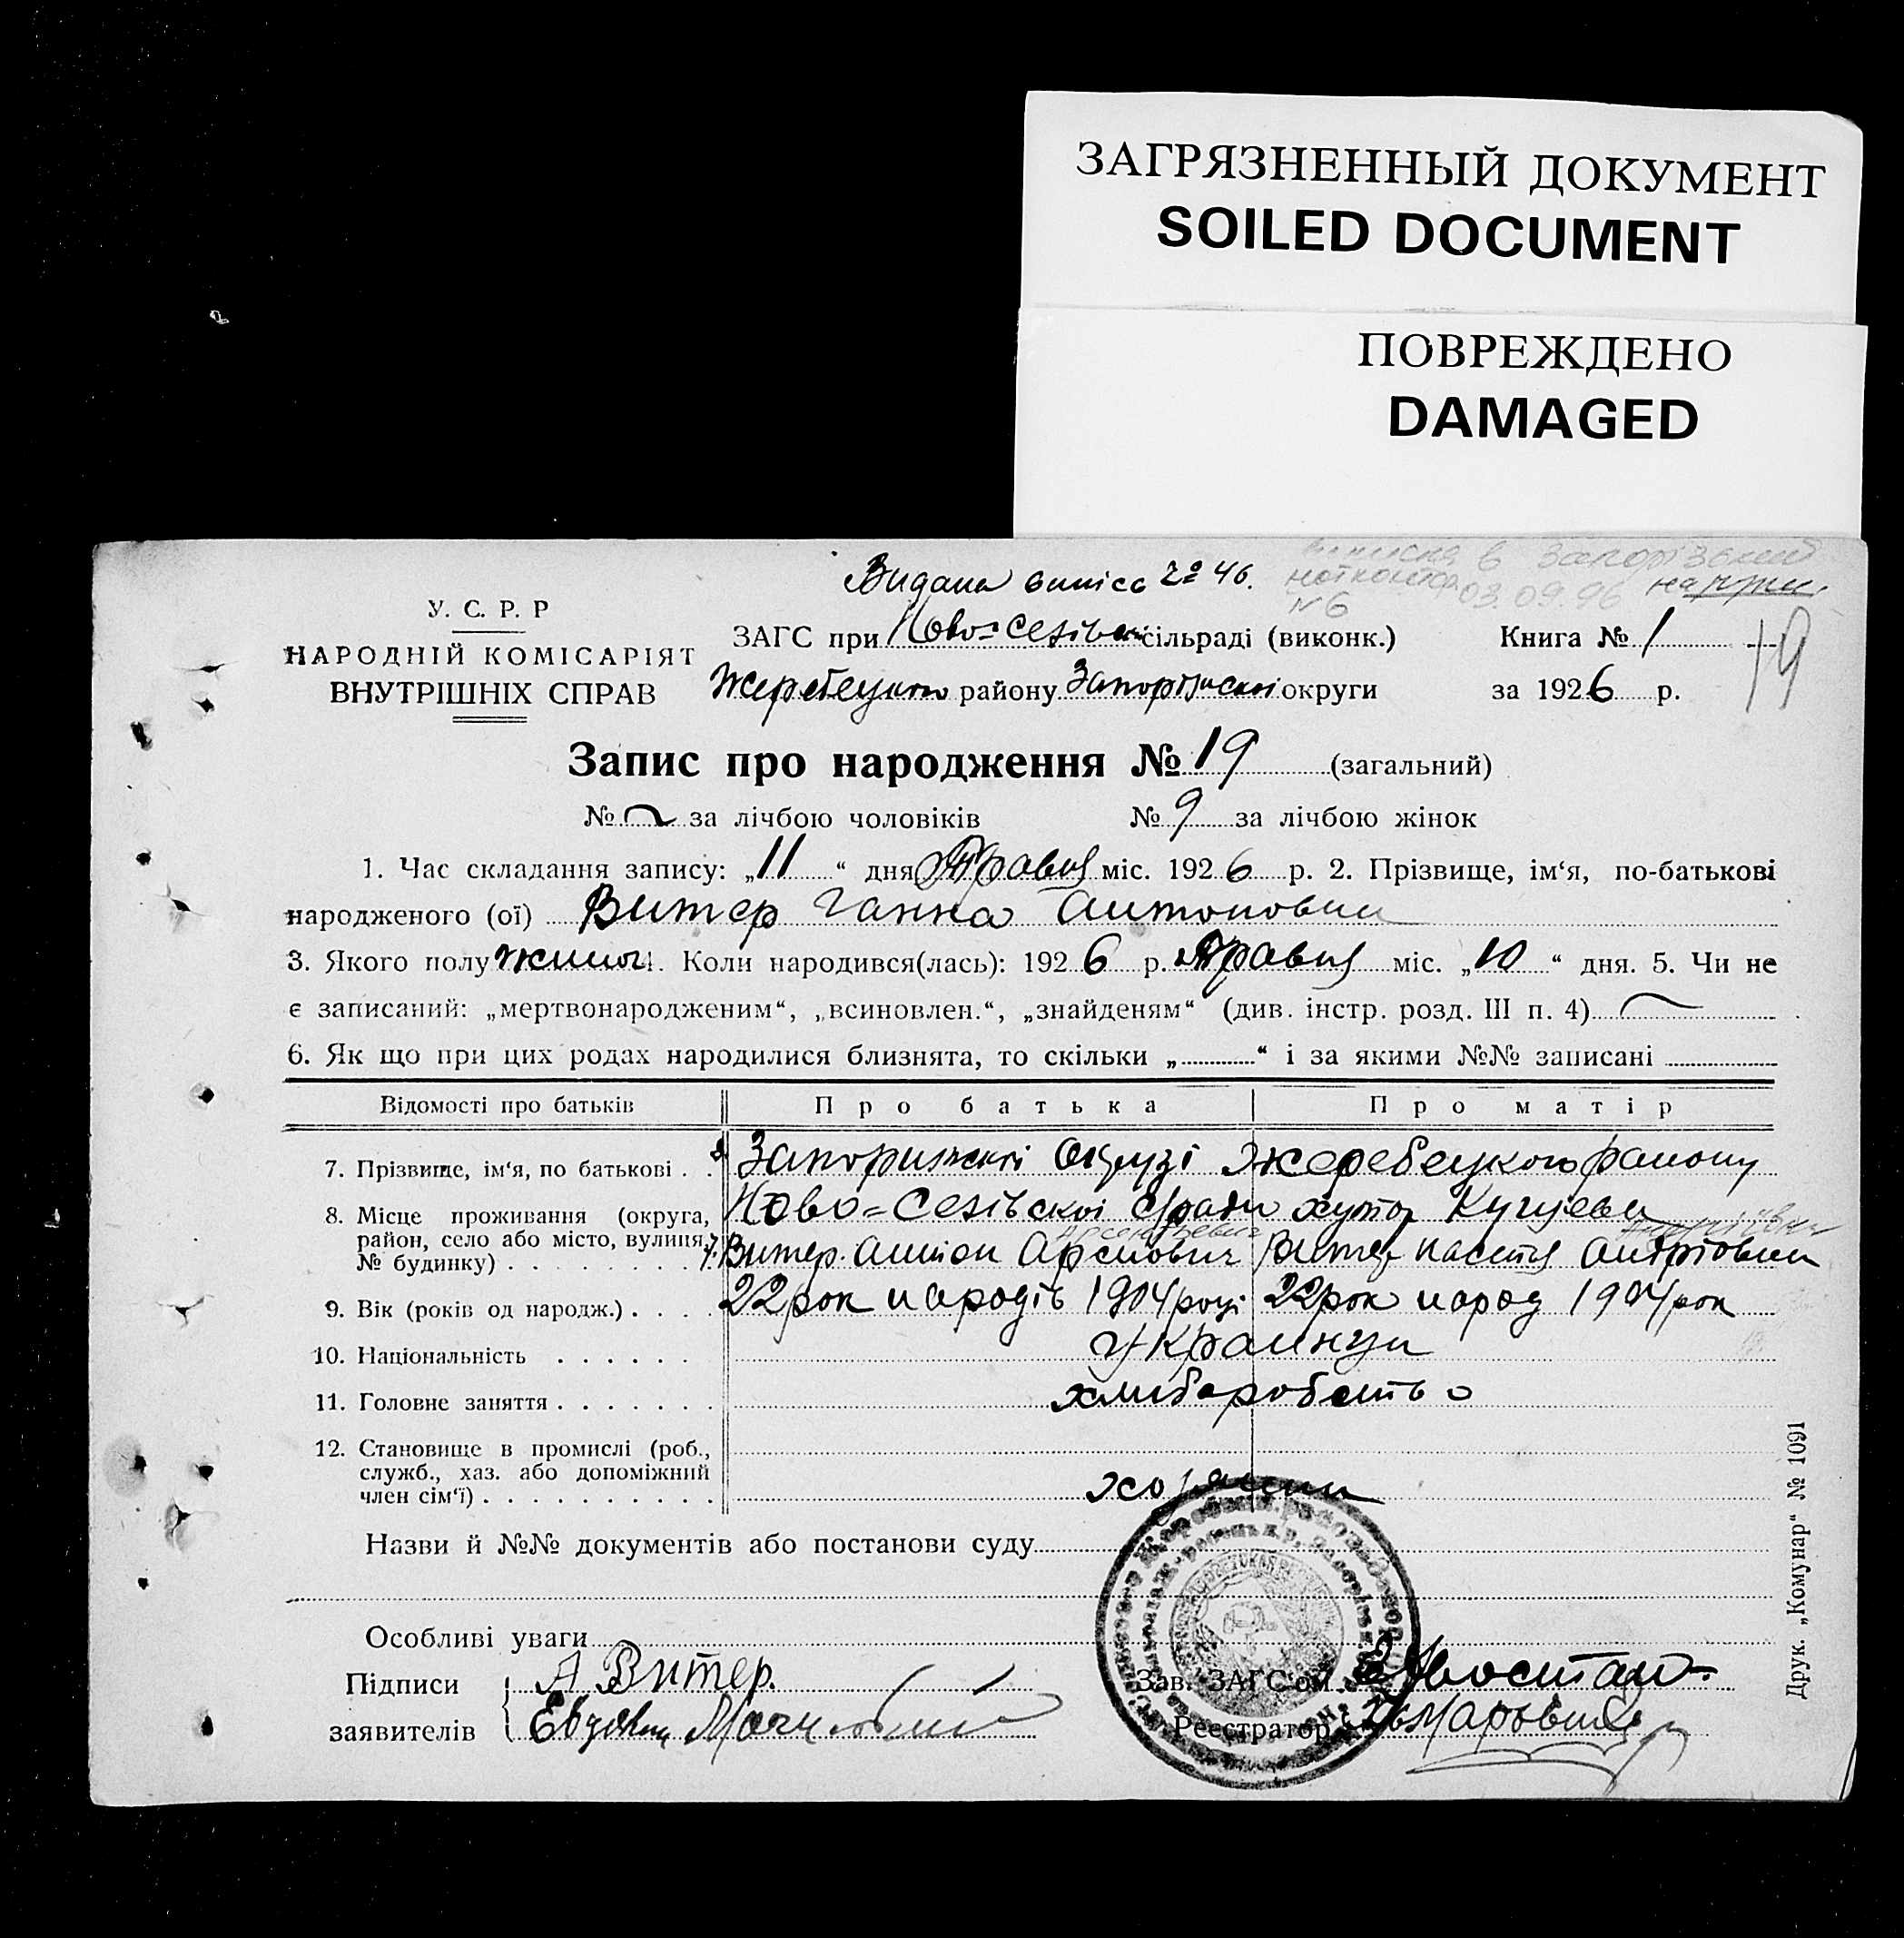 ЗАГРЯЗНЕННЫЙ ДОКУМЕНТ
SOILED DOCUMENT
ПОВРЕЖДЕНО
DAMAGED
Видана випісь № 46.
в Запорізский
03.09.96
№ 6
У. С. Р. Р
НАРОДНІЙ КОМІСАРІЯТ
ВНУТРІШНІХ СПРАВ
ЗАГС при сільраді (виконк.)
Книга № 1
19
Жеребецкого району Запоріжскої округи
за 1926 р.
Запис про народження № 19 (загальний)
№ за лічбою чоловіків № 9 за лічбою жінок
1. Час складання запису: „11“ дня Травня міс. 1926 р. 2. Прізвище, ім‘я, по-батькові
народженого (ої) Витер Ганна Антоновна
3. Якого полу 4. Коли народився(лась): 1926 р. Травня міс. „10“ дня. 5. Чи не
є записаний: „мертвонародженим“, „всиновлен.“, „знайденям“ (див. інстр. розд. III п. 4)
6. Як що при цих родах народилися близнята, то скільки „ “ і за якими №№ записані
Відомості про батьків Про батька Про матір
7. Прізвище, ім‘я, по батькові . . 8 Запорижскої Окрузі Жеребецкого району
8. Місце проживання (округа, район, село або місто, вулиця, № будинку) . . . . . . . . хутор
Арсентьевич
7. Витер Антон Арснович Витер Настя
9. Вік (років од народж.) . . . . 22 рок народів 1904 році 22 рок народ 1904 рок
10. Національність . . . . . . Украинци
11. Головне заняття . . . . . . . хлибаробство
12. Становище в промислі (роб., служб., хаз. або допоміжний член сім‘ї) . . . . . . . . . .
Назви й №№ документів або постанови суду
Особливі уваги
Підписи
заявителів
А Витер.
Зав. ЗАГС‘ом
Реєстратор
Друк. „Комунар“ № 1091